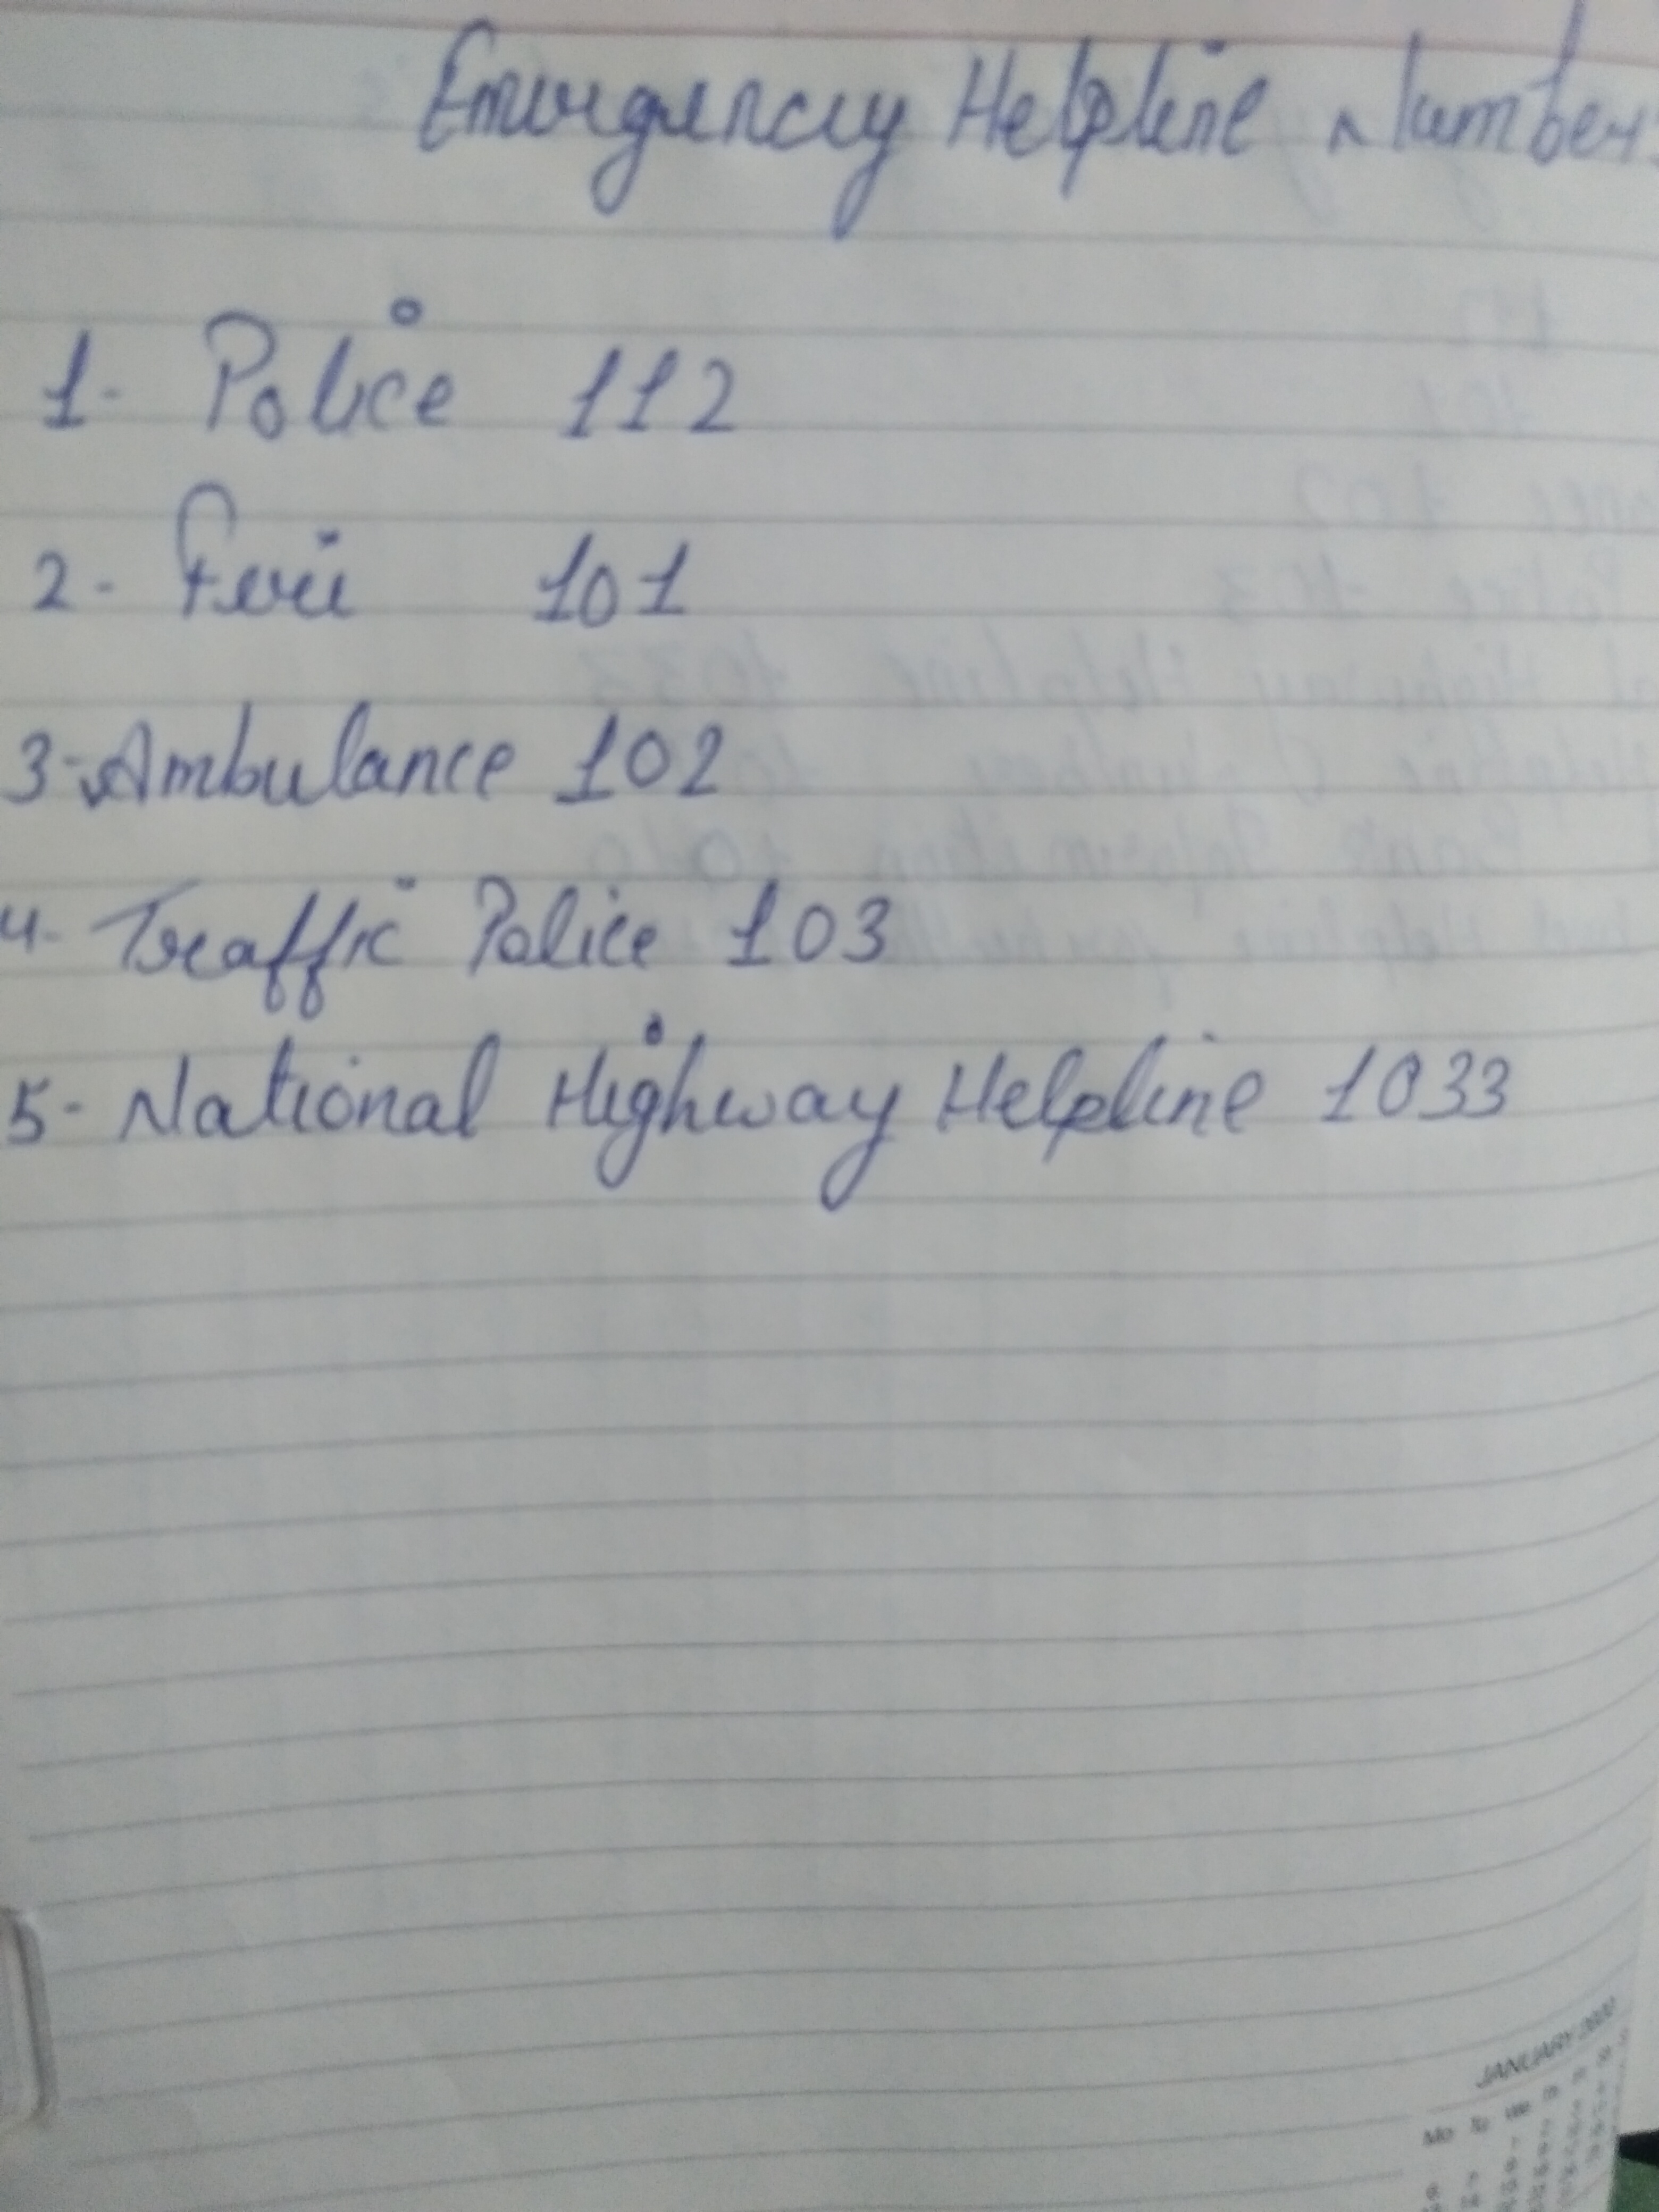 Emergency Helpline Number
1- Police 112
2- Fire 101
3- Ambulance 102
4- Traffic Police 103
5- National Highway Helpline 1033
JANUARY
Mo Tu We